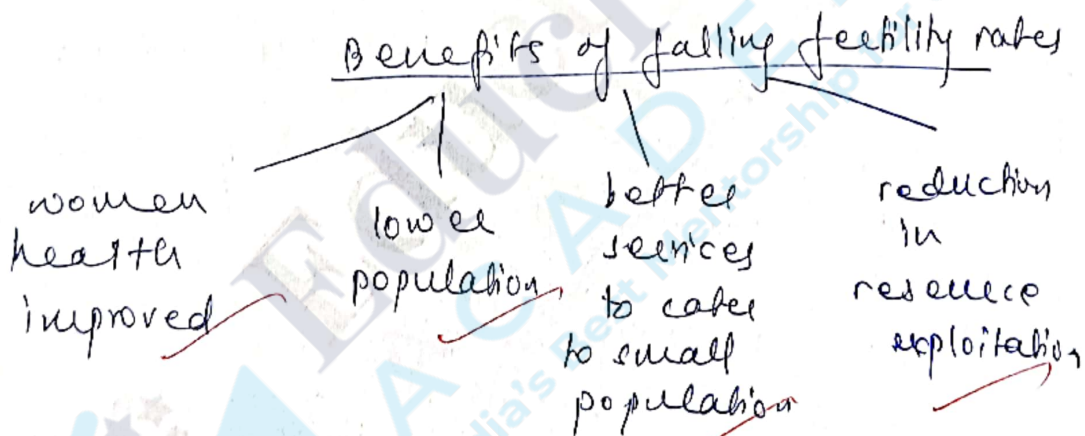 Benefits of falling fertility rates
women
health
improved
lower
population
better
services
to cater
to small
population
reduction
in
resource
exploitation
Educ
ACADE
dia's Best Mentorship for